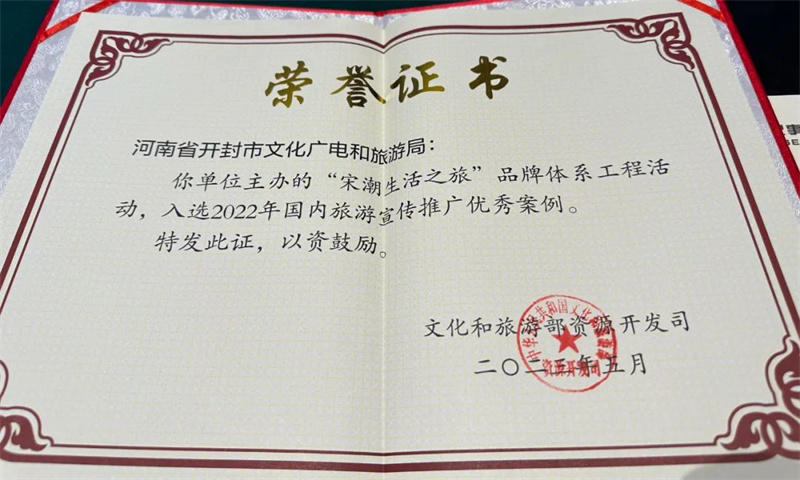 荣誉证书
河南省开封市文化广电和旅游局：
你单位主办的“宋潮生活之旅”品牌体系工程活
动，入选2022年国内旅游宣传推广优秀案例。
特发此证，以资鼓励。
文化和旅游部资源开发司
二〇二三年五月
资源开发司